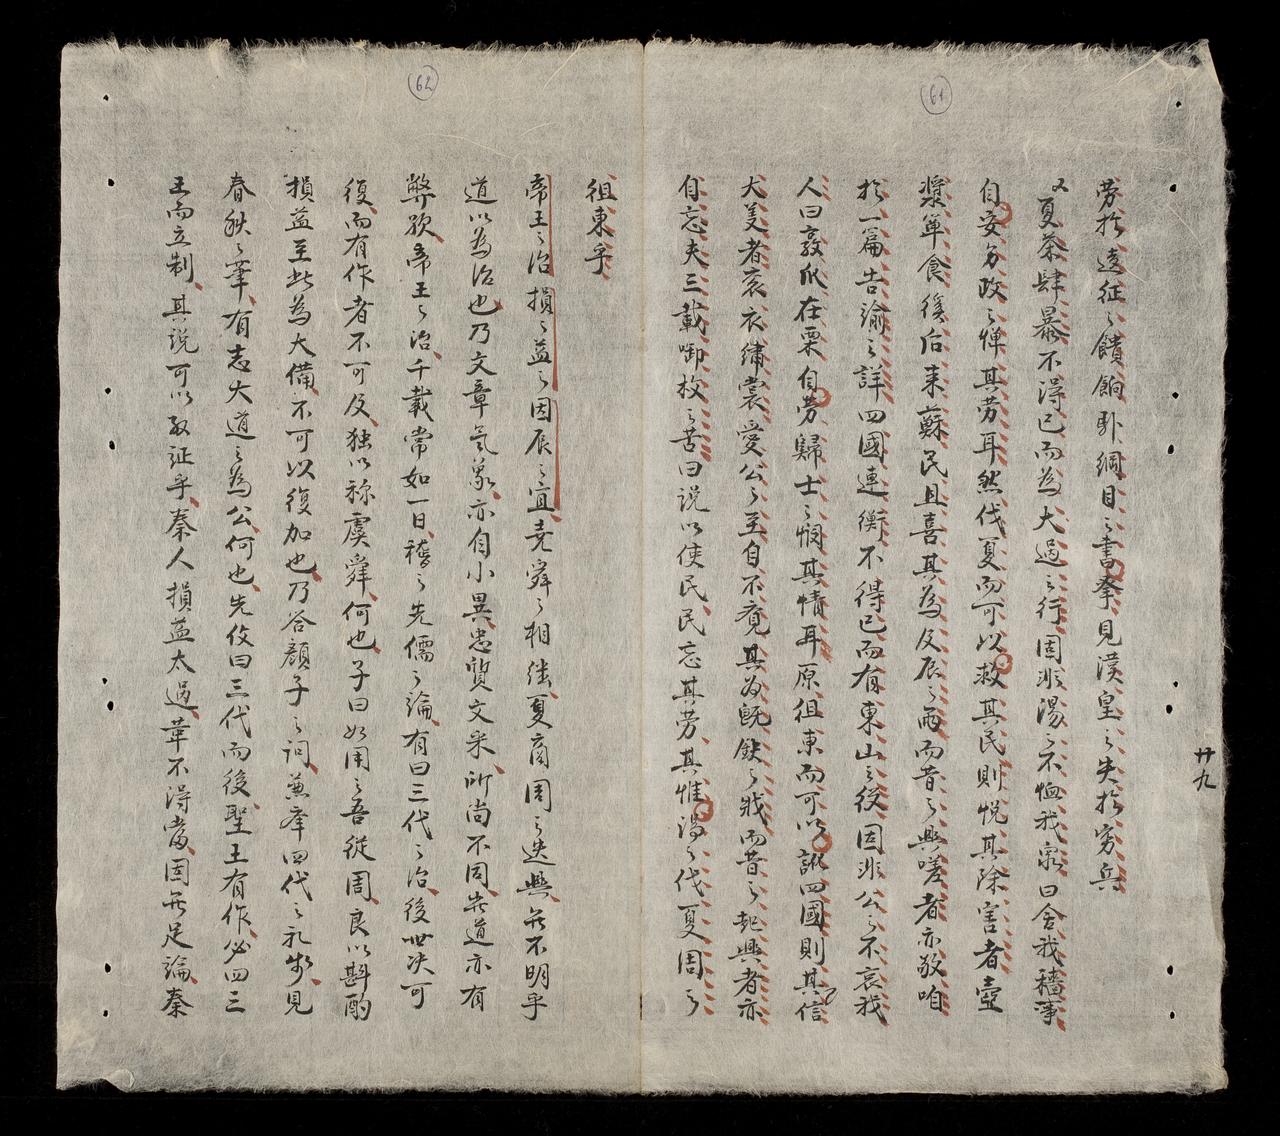 61
廿九
劳於遠征之饋餉卧綱目之書拳見漢皇之失於窮兵
又夏荼肆暴不淂已而為大過之行固非湯之不恤我衆曰舍我穡事
自安夯政之惮其劳耳然伐夏而可以救其民則悦其除害者壺
漿箪食徯后来蘇民且喜其為及辰之雨而昔之興嗟者亦敬咱
於一篇告諭之詳四國連衡不得已而有東山之役固非公之不哀我
人曰敦瓜在栗自劳歸士之悯其情耳原徂東而可以訛四國則其信
大美者衮衣繡裳愛公之至自不覓其为既缺之戕而昔之起興者亦
自忘夫三載啣枚之苦曰説以使民民忘其劳其惟湯之伐夏周之
62
徂東乎
帝王之治損之益之因辰之宜尭舜之相継夏商周之迭興無不明乎
道以為治也乃文章氣象亦自小異忠質文米所尚不同岂道亦有
弊欤帝王之治千載常如一日稽之先儒之論有曰三代之治後世决可
復而有作者不可及独以称虞舜何也子曰如用之吾従周良以斟酌
損益至此為大備不可以復加也乃答顔子之詞兼牽四代之礼步見
春秋之筆有志大道之為公何也先伩曰三代而後聖王有作必四三
王而立制其説可以取証乎秦人損益太過革不淂當固無足論秦